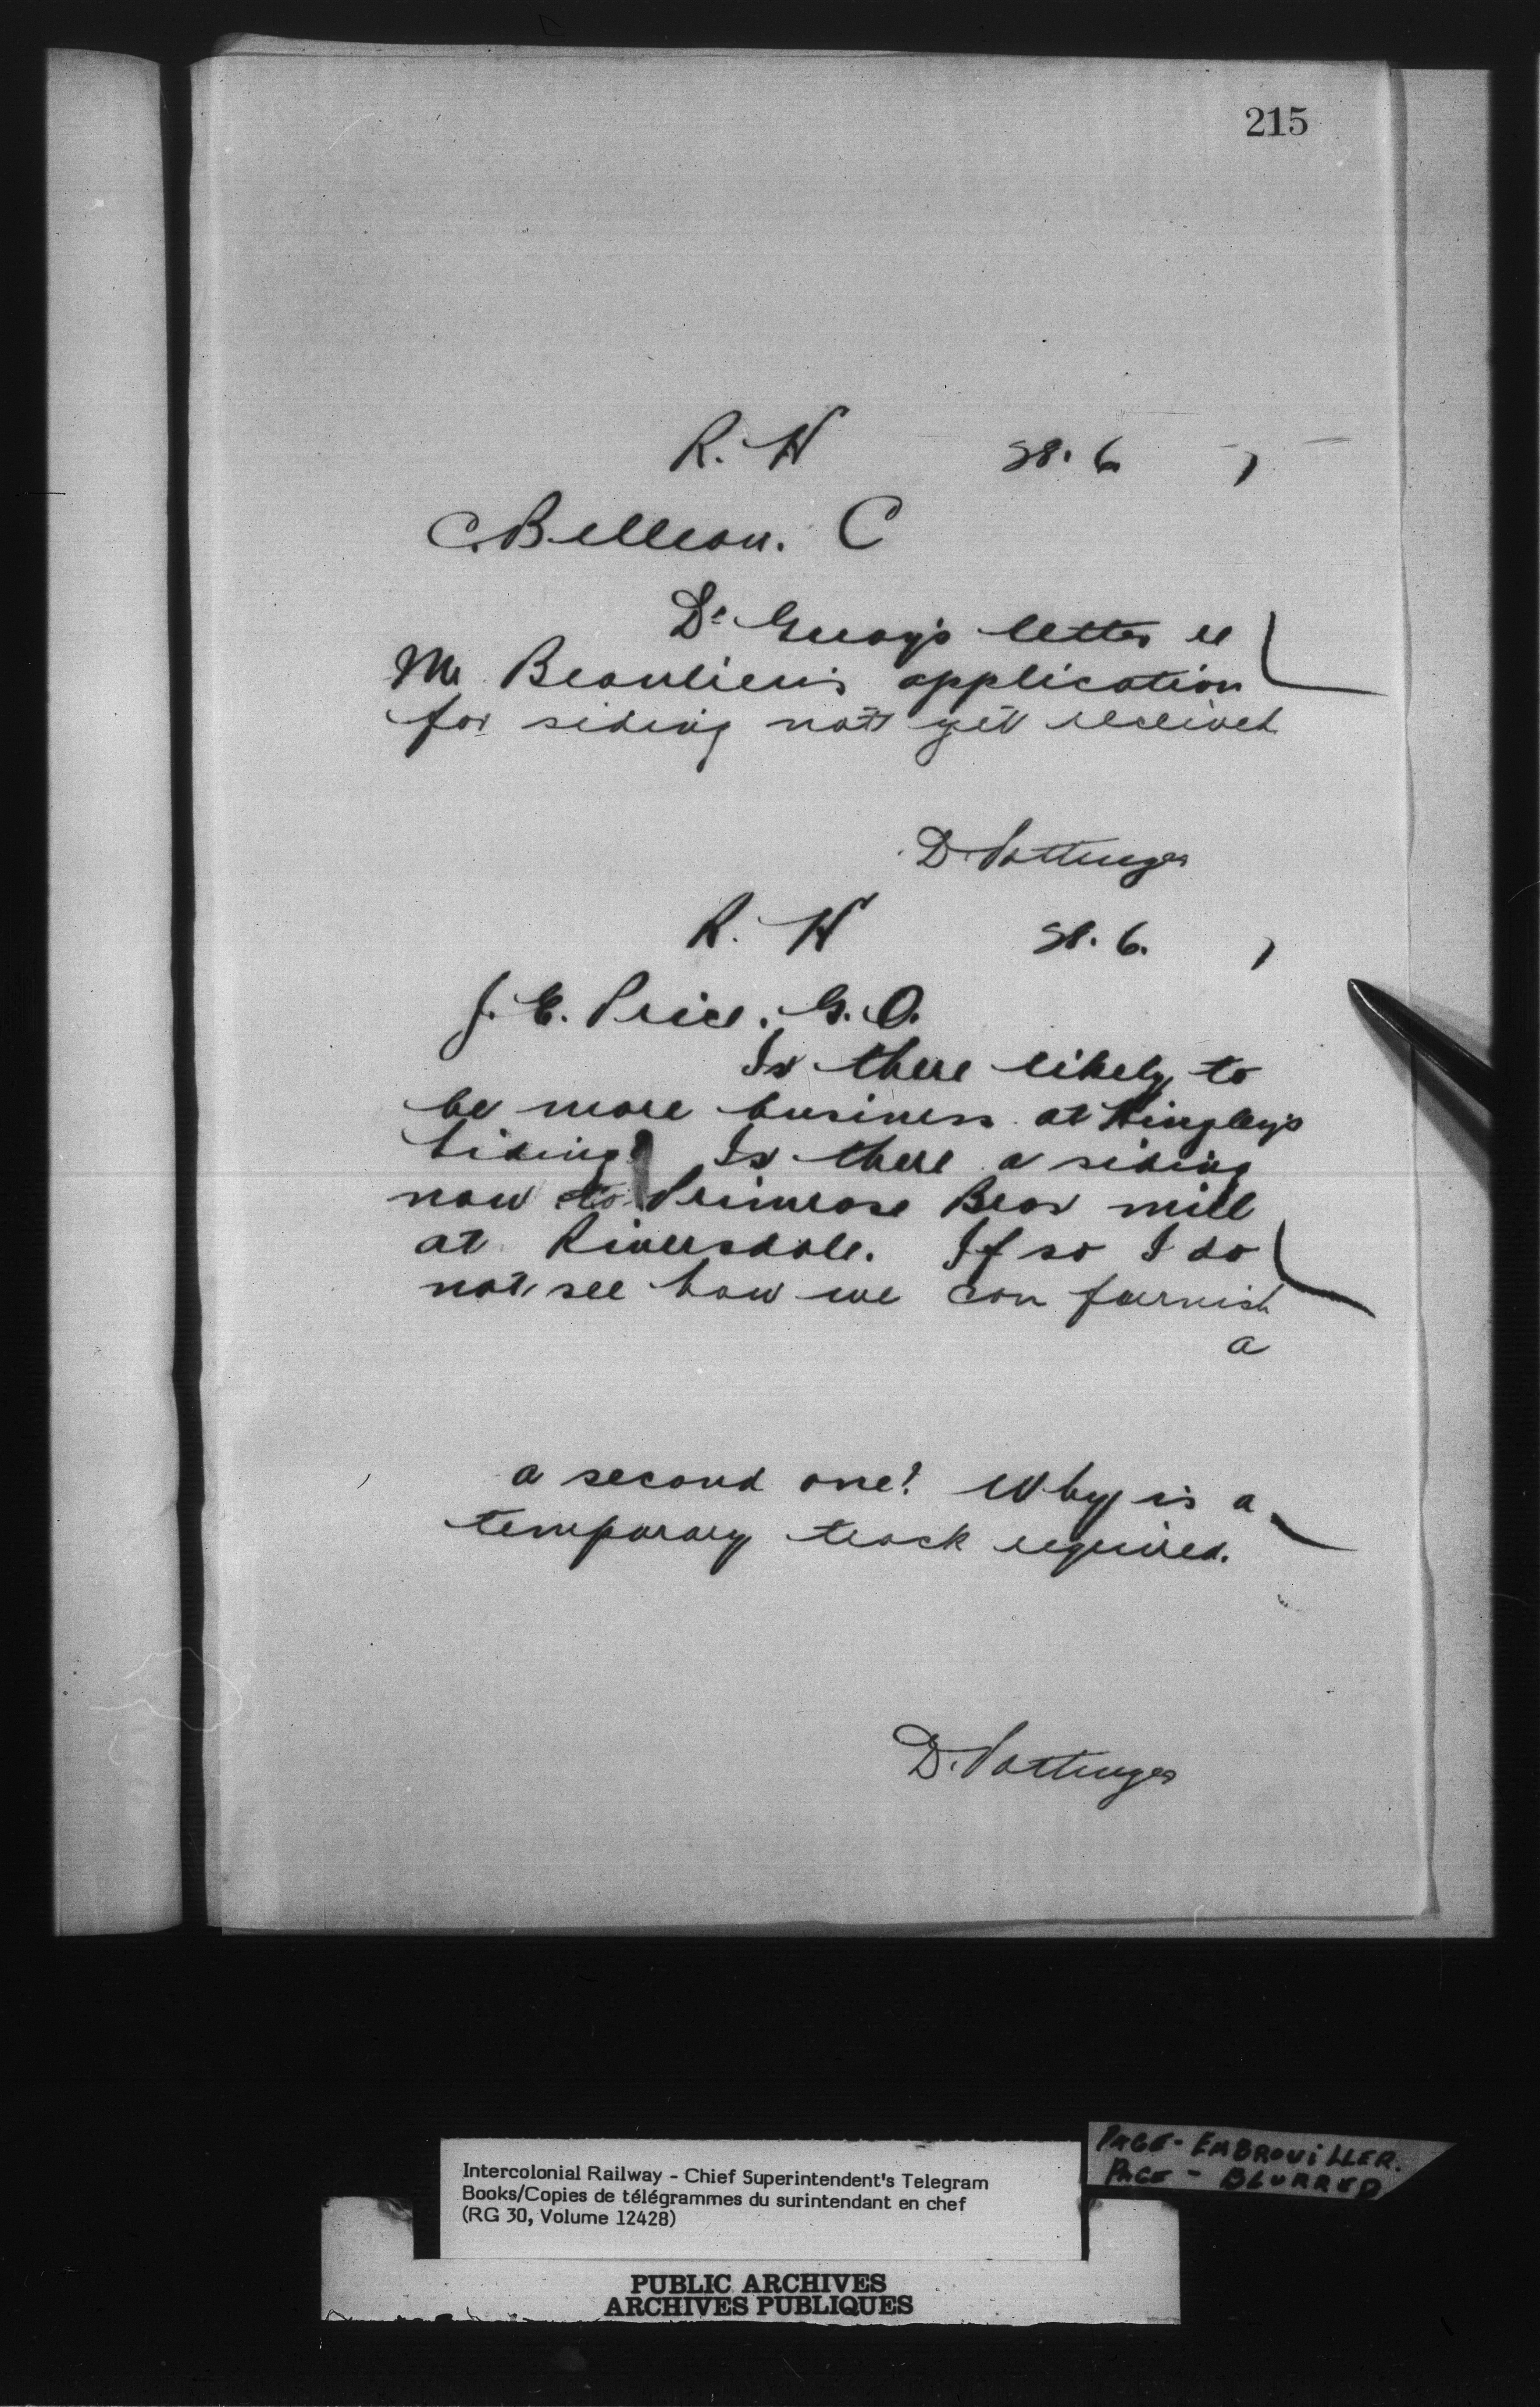 215
R. W 28. 6 1
C. Belleau. C
Dr Guay's letter re
Mr Beaulieu's application
for siding not yet received
D. Pottinger
R. W 28. 6. 1
J. E. Price. G. O.
Is there likely to
be more business at Kingley's
siding? Is there a siding
now to Primrose Bros mill
at Riversdale. If so I do
not see how we can furnish
a
a second one? Why is a
temporary track required.
D. Pottinger
Intercolonial Railway - Chief Superintendent's Telegram
Books/Copies de télégrammes du surintendant en chef
(RG 30, Volume 12428)
PAGE - EMBROUILLER.
PAGE - BLURRED
PUBLIC ARCHIVES
ARCHIVES PUBLIQUES